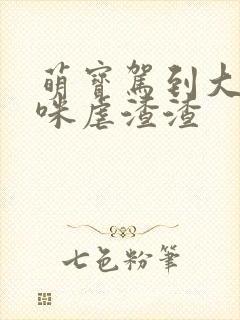 萌寶駕到大
咪虐渣渣
七色粉筆